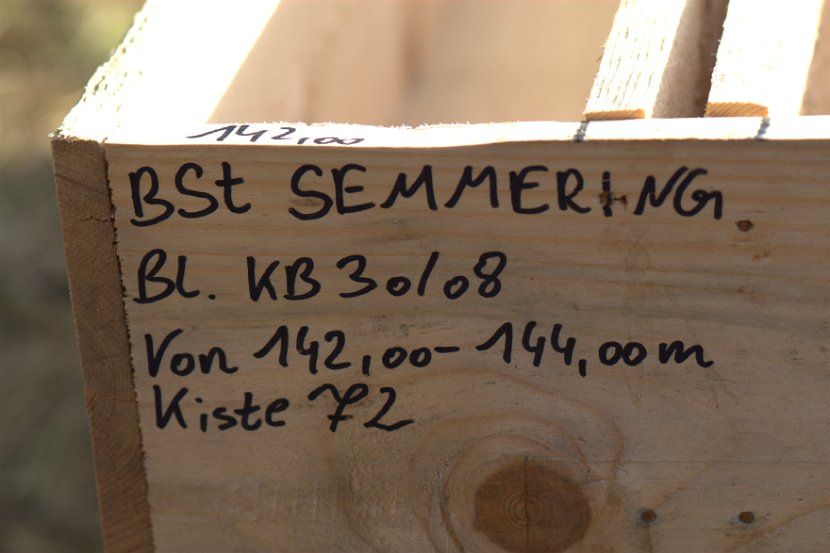 142,00
BSt SEMMERING
BL. KB 30/08
Von 142,00-144,00m
Kiste 72